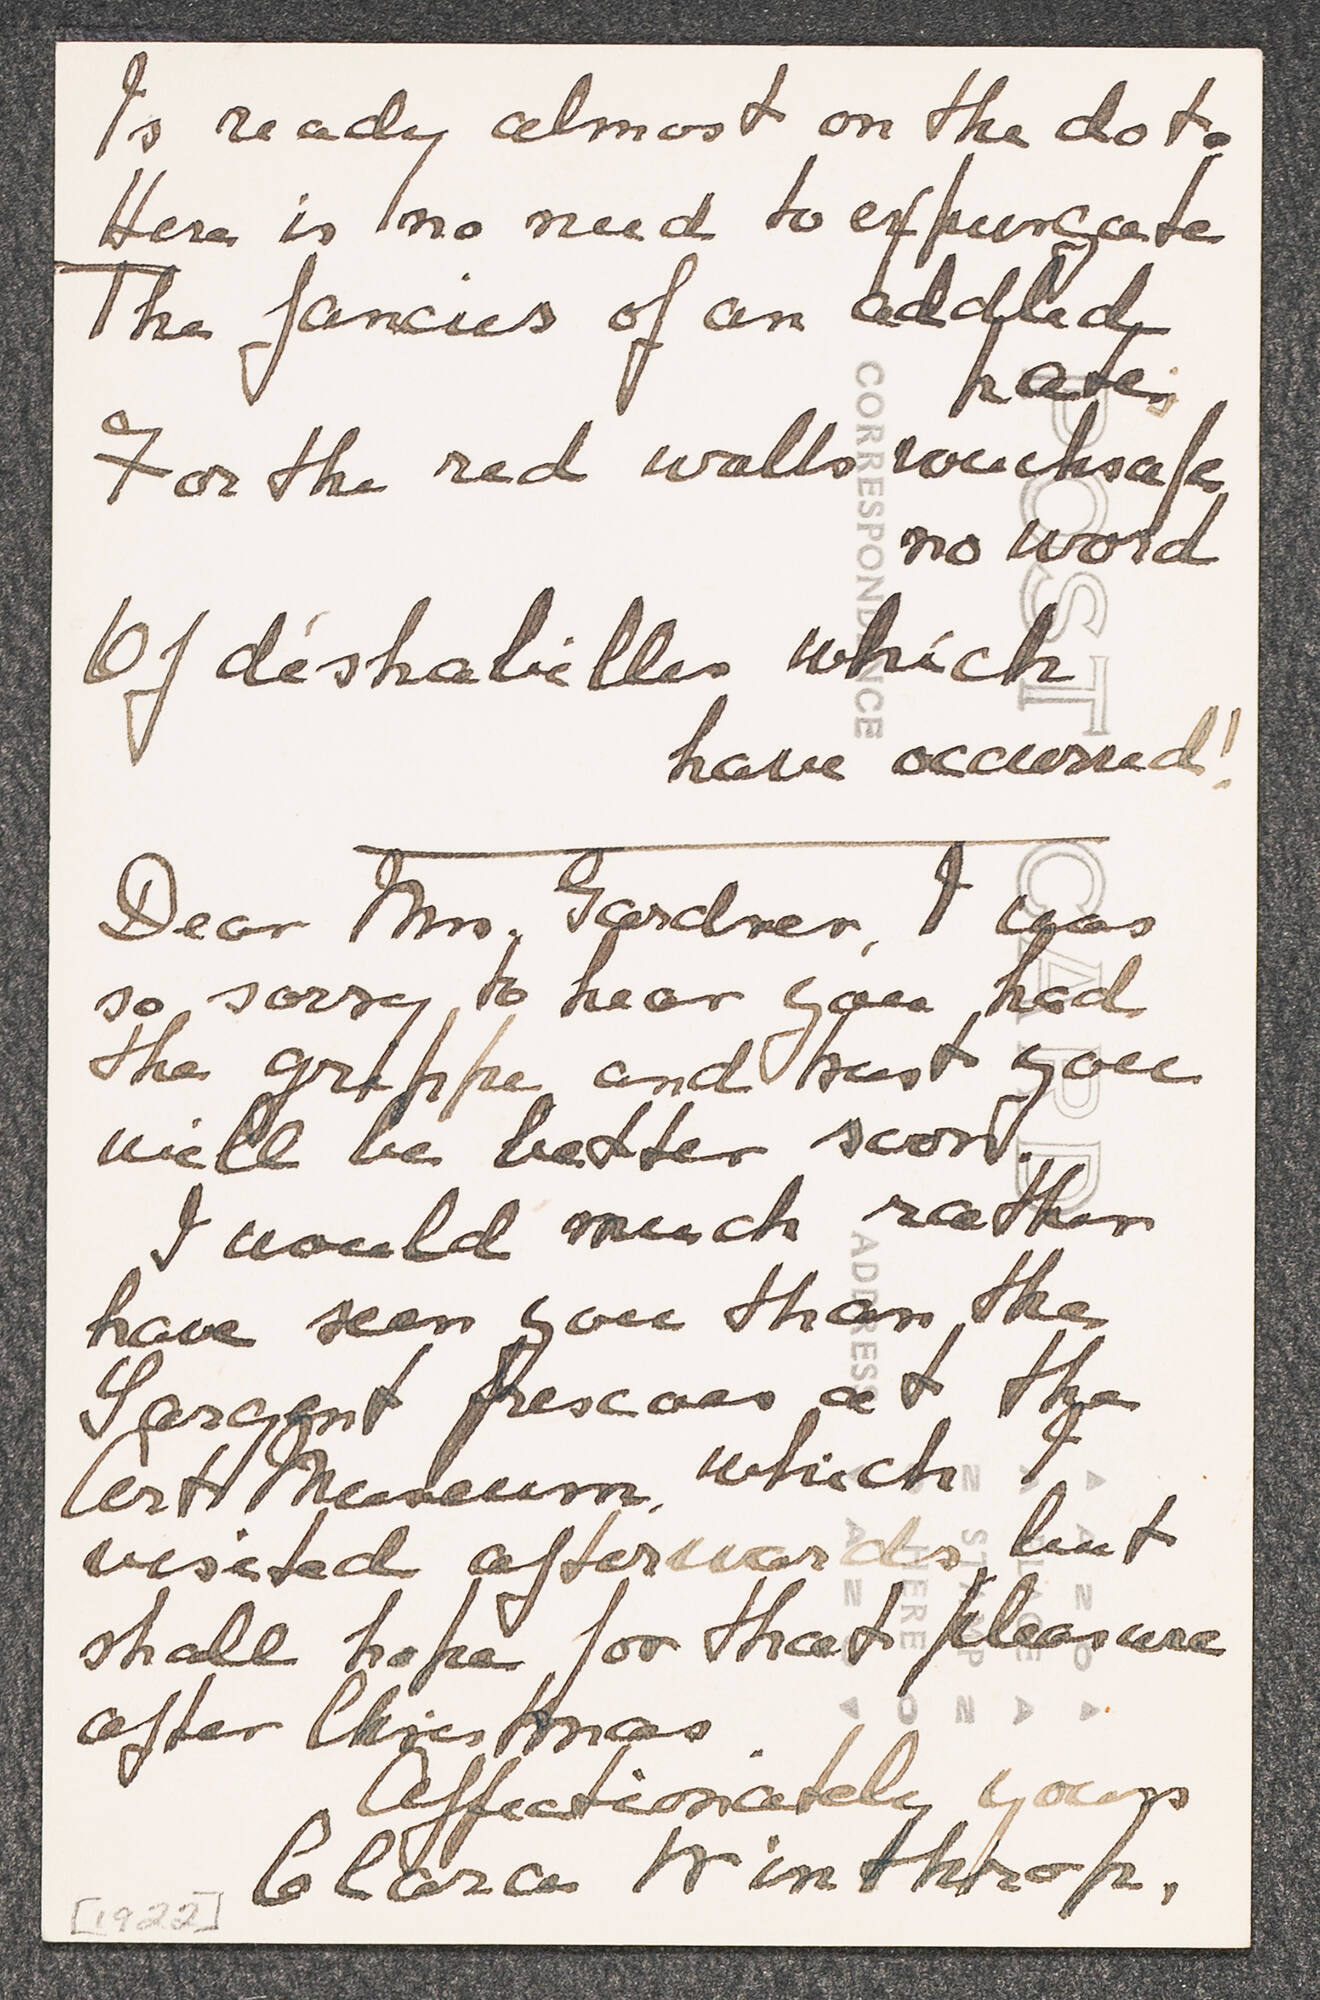 Is ready almost on the dot.
Here is no need to expurgate
The fancies of an addled
pate;
For the red walls vouchsafe
no word
Of déshabilles which
have occurred!
Dear Mrs. Gardner, I was
so sorry to hear you had
the grippe and trust you
will be better soon.
I would much rather
have seen you than the
Sargent frescoes at the
Art Museum, which I
visited afterwards, but
shall hope for that pleasure
after Christmas.
Affectionately yours
Clara Winthrop.
[1922]
POST CARD
CORRESPONDENCE
ADDRESS
PLACE
STAMP
HERE
AZO